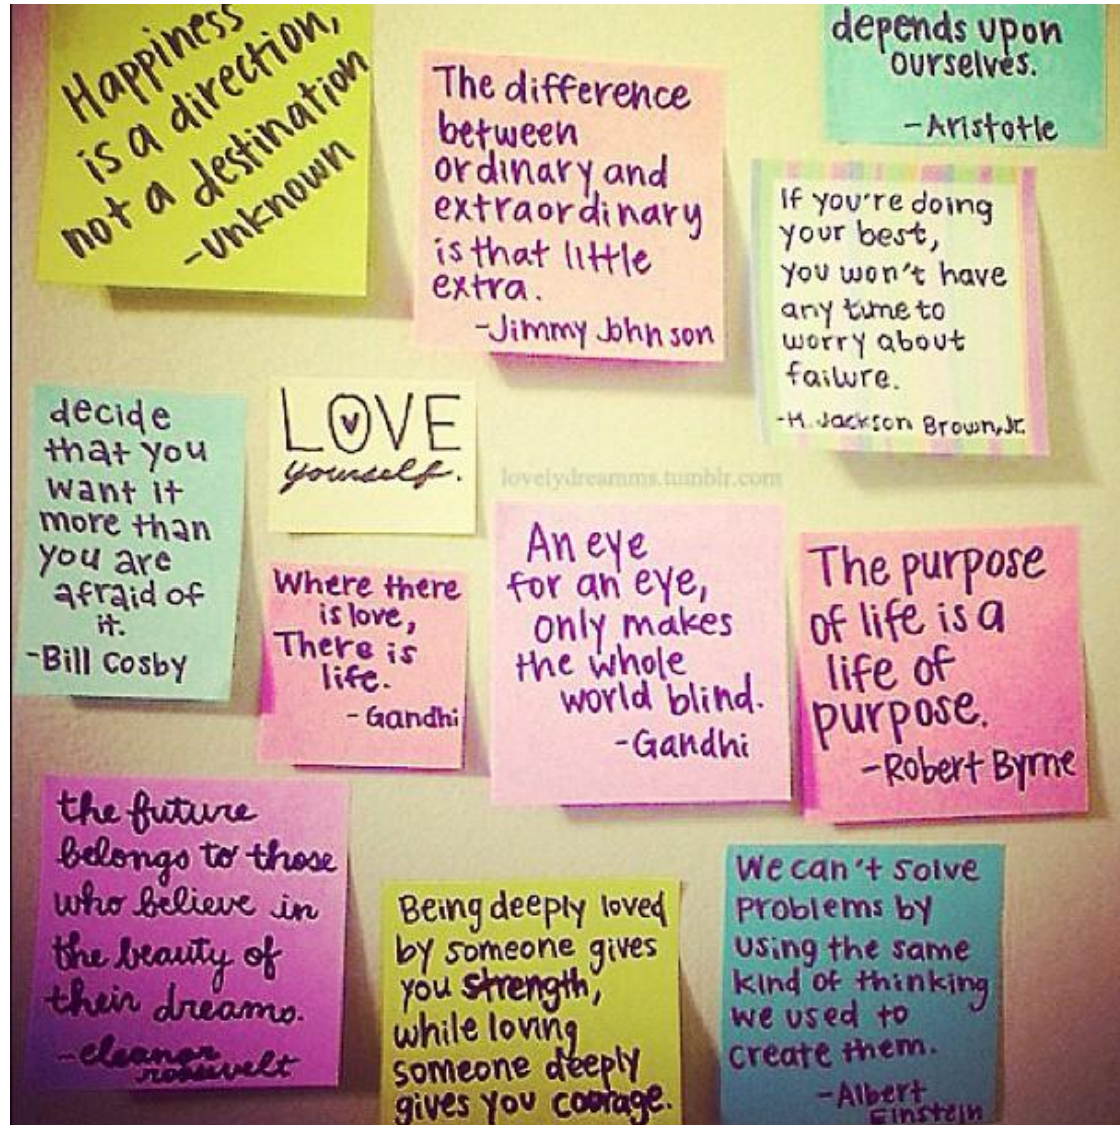 Happiness
is a direction,
not a destination
-unknown
The difference
between
ordinary and
extraordinary
is that little
extra.
-Jimmy Johnson
depends upon
ourselves.
-Aristotle
If you're doing
your best,
you won't have
any time to
worry about
failure.
-H. Jackson Brown, Jr.
decide
that you
want it
more than
you are
afraid of
it.
-Bill Cosby
LOVE
yourself.
lovelydreamms.tumblr.com
Where there
is love,
There is
life.
-Gandhi
An eye
for an eye,
only makes
the whole
world blind.
-Gandhi
The purpose
of life is a
life of
purpose.
-Robert Byrne
the future
belongs to those
who believe in
the beauty of
their dreams.
-eleanor
roosevelt
Being deeply loved
by someone gives
you strength,
while loving
someone deeply
gives you courage.
We can't solve
problems by
using the same
kind of thinking
we used to
create them.
-Albert
Einstein